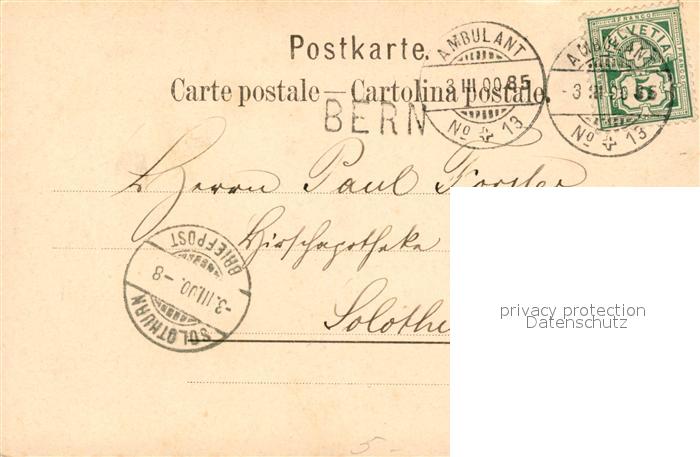 Postkarte.
Carte postale — Cartolina postale.
BERN
AMBULANT
3 III 00 85
No 13
AMBULANT
-3 III 00 85
No 13
FRANCO
HELVETIA
5
Herrn Paul Forster
Hirschapotheke
Solothu
BRIEFPOST
-3.III.00.-8
SOLOTHURN
privacy protection
Datenschutz
5-